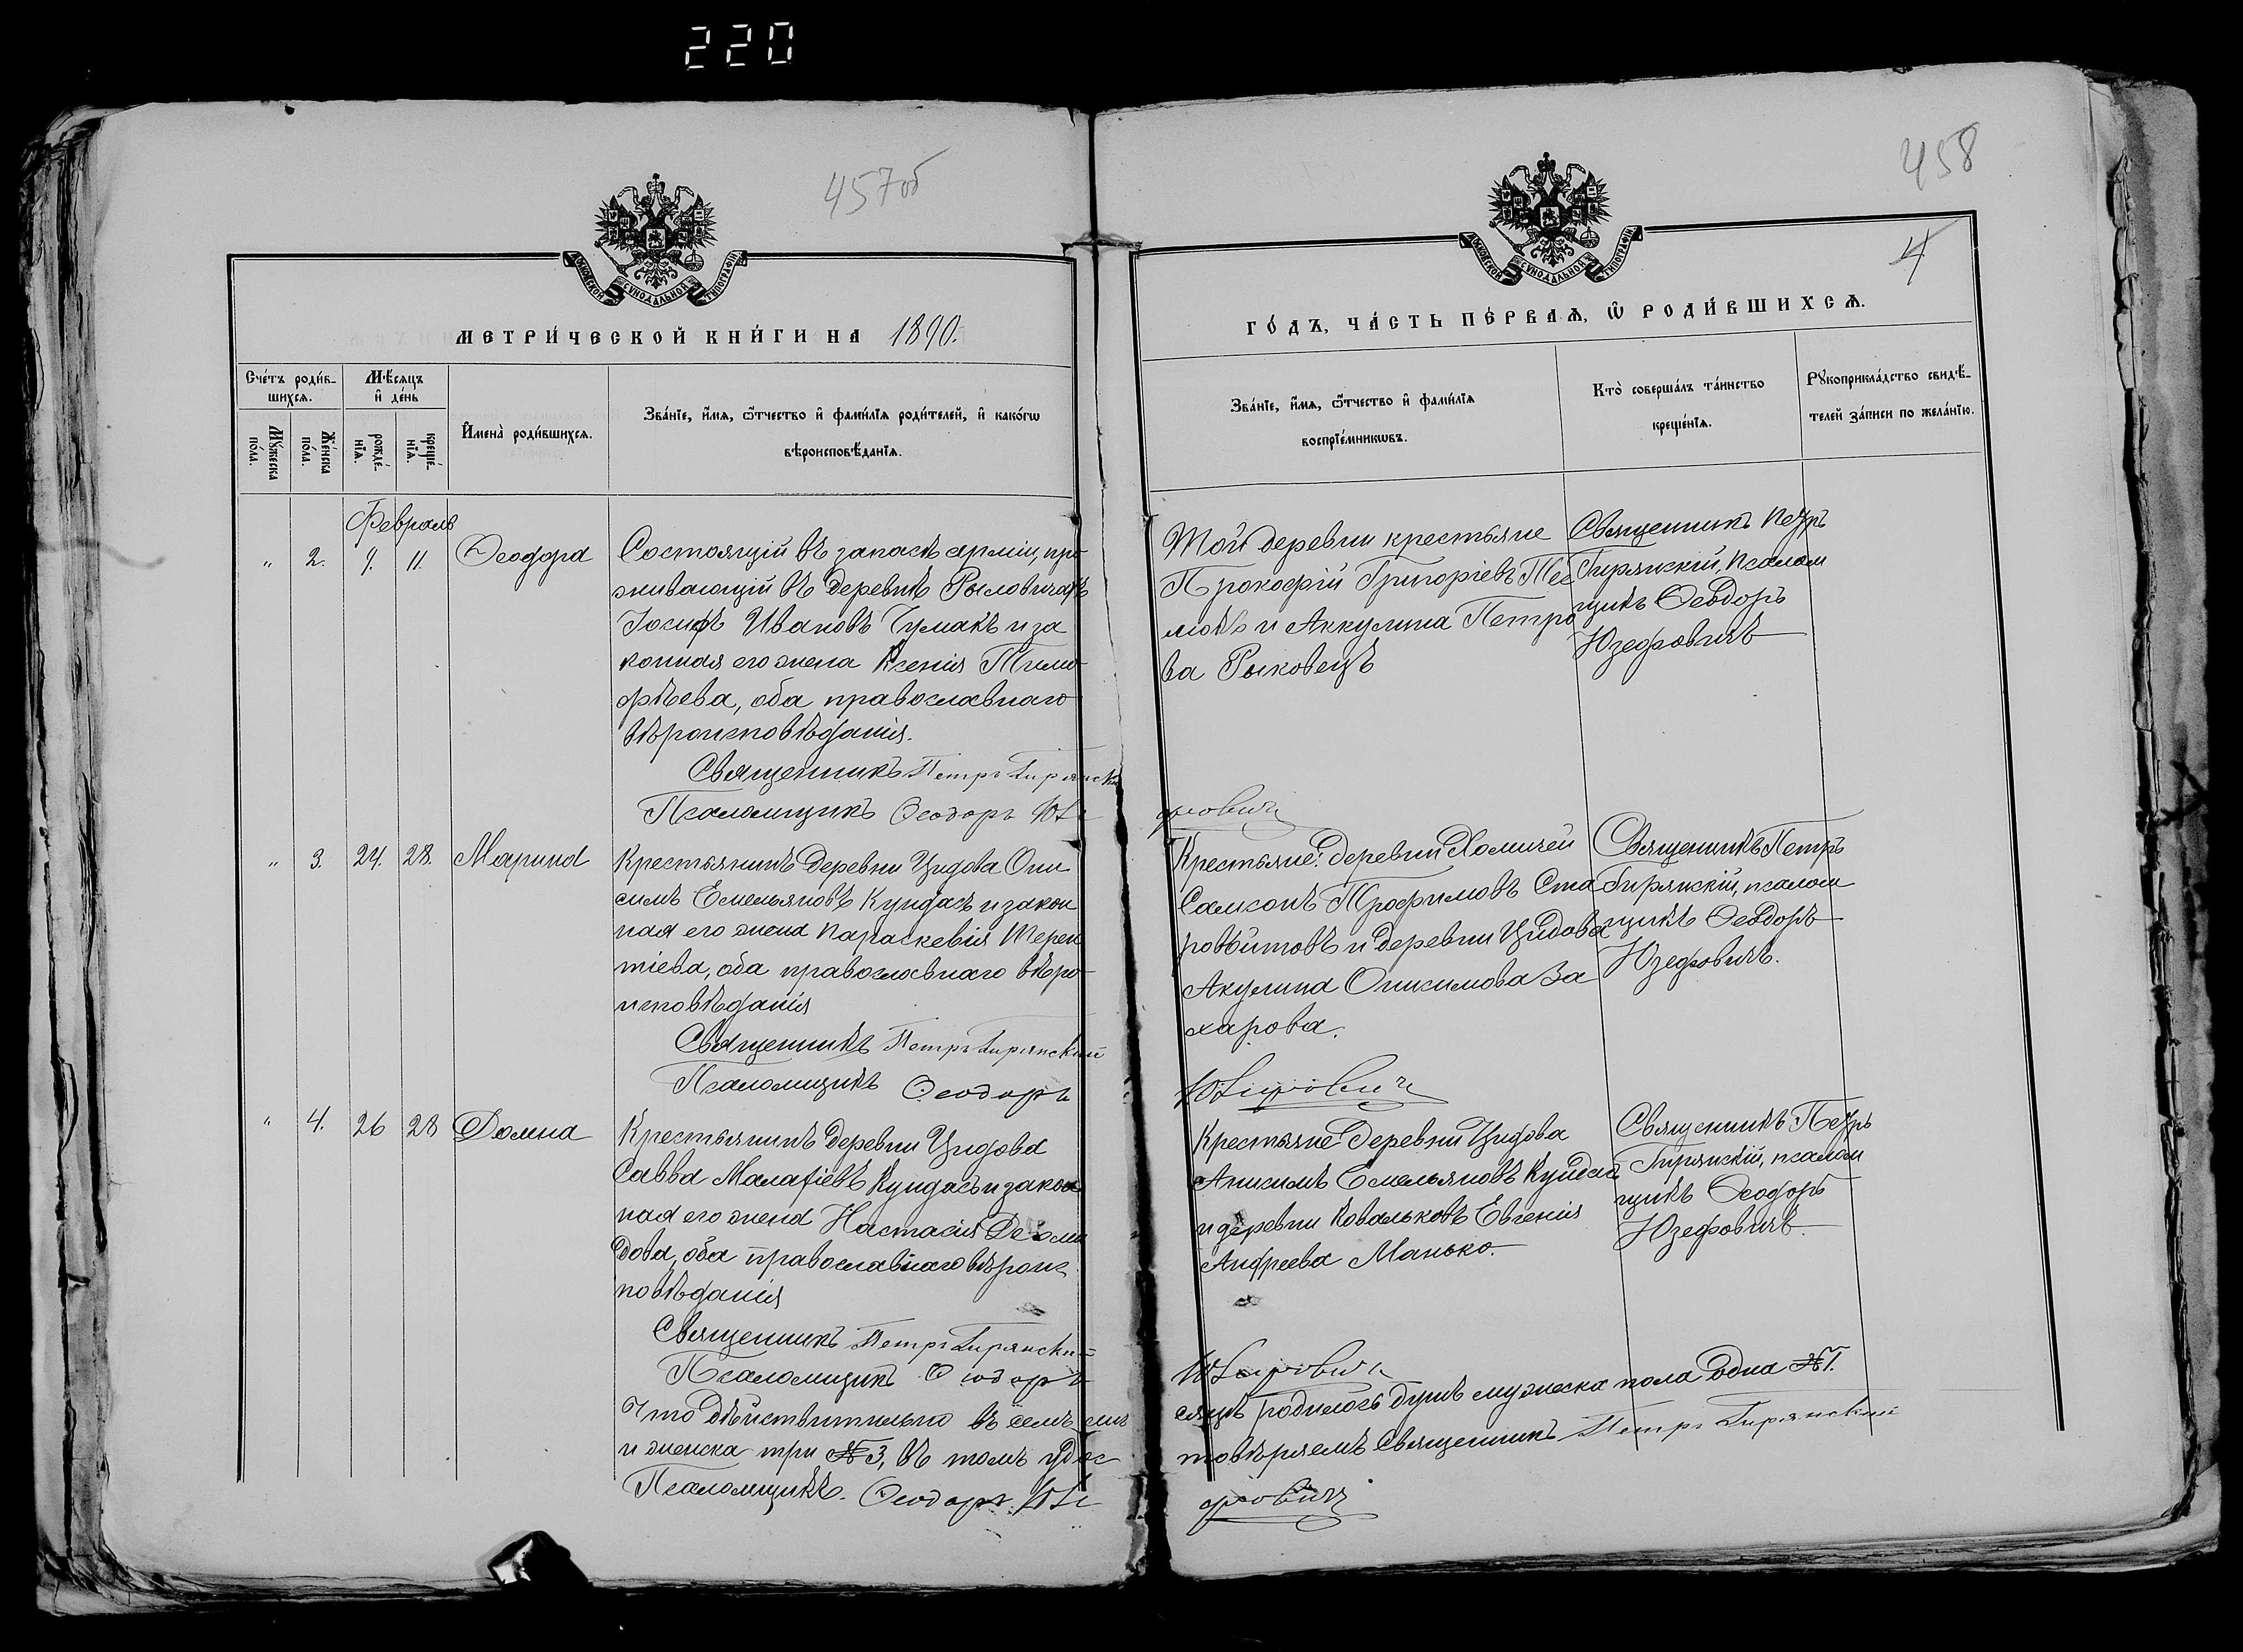 220
457об
458
4
МОСКОВСКОЙ СѴНОДАЛЬНОЙ ТИПОГРАФІИ
МОСКОВСКОЙ СѴНОДАЛЬНОЙ ТИПОГРАФІИ
МЕТРИ́ЧЕСКОЙ КНИ́ГИ НА 1890.
ГО́ДЪ, ЧА́СТЬ ПЕ́РВАѦ, Ѽ РОДИ́ВШИХСѦ.
Сче́тъ роди́в-
шихсѧ.
Мѣ́сѧцъ
и҆ де́нь
Мꙋ́жеска
по́ла.
Же́нска
по́ла.
рожде́-
нїѧ.
креще́-
нїѧ.
И҆мена̀ роди́вшихсѧ.
Зва́нїе, и҆́мѧ, ѻ҆́тчество и҆ фами́лїѧ роди́телей, и҆ како́гѡ
вѣроисповѣ́данїѧ.
Зва́нїе, и҆́мѧ, ѻ҆́тчество и҆ фами́лїѧ
воспрїе́мникѡвъ.
Кто̀ соверша́лъ та́инство
креще́нїѧ.
Рꙋкоприкла́дство свидѣ́-
телей за́писи по жела́нїю.
Февраль
„ 2. 9. 11. Ѳеодора
Состоящій въ запасѣ арміи, про
живающій въ деревнѣ Рыловичахъ
Іосифъ Ивановъ Чумакъ и за
конная его жена Ксенія Тимо
фѣева, оба православнаго
вѣроисповѣданія.
Священникъ Петръ Гирянскій
Псаломщикъ Ѳеодоръ Юзе
фовичъ
Той деревни крестьяне
Прокофій Григоріевъ Тес
люкъ и Аккулина Петро
ва Рыковецъ
Священникъ Петръ
Гирянскій, псалом
щикъ Ѳеодоръ
Юзефовичъ
„ 3. 24. 28. Марина
Крестьянинъ деревни Цидова Они
симъ Емельяновъ Кундасъ и закон
ная его жена Параскевія Терен
тіева, оба православнаго вѣро
исповѣданія
Священникъ Петръ Гирянскій
Псаломщикъ Ѳеодоръ
Юзефовичъ
Крестьяне: деревни Хомичей
Самсонъ Трофимовъ Ста
ровойтовъ и деревни Цидова
Акулина Онисимова За
харова.
Священникъ Петръ
Гирянскій, псалом
щикъ Ѳеодоръ
Юзефовичъ.
„ 4. 26 28 Домна
Крестьянинъ деревни Цидова
Савва Малафіевъ Кундасъ и закон
ная его жена Настасія Деоми
дова, оба православнаго вѣроис
повѣданія
Священникъ Петръ Гирянскій
Псаломщикъ Ѳеодоръ
Юзефовичъ
Крестьяне деревни Цидова
Анисимъ Емельяновъ Кундасъ
и деревни Ковальковъ Евгенія
Андреева Манько.
Священникъ Петръ
Гирянскій, псалом
щикъ Ѳеодоръ
Юзефовичъ.
Что дѣйствительно въ семъ мѣ
сяцѣ родилось душъ мужеска пола одна №1.
и женска три №3, въ томъ удос
товѣряемъ Священникъ Петръ Гирянскій
Псаломщикъ. Ѳеодоръ Юзе
фовичъ